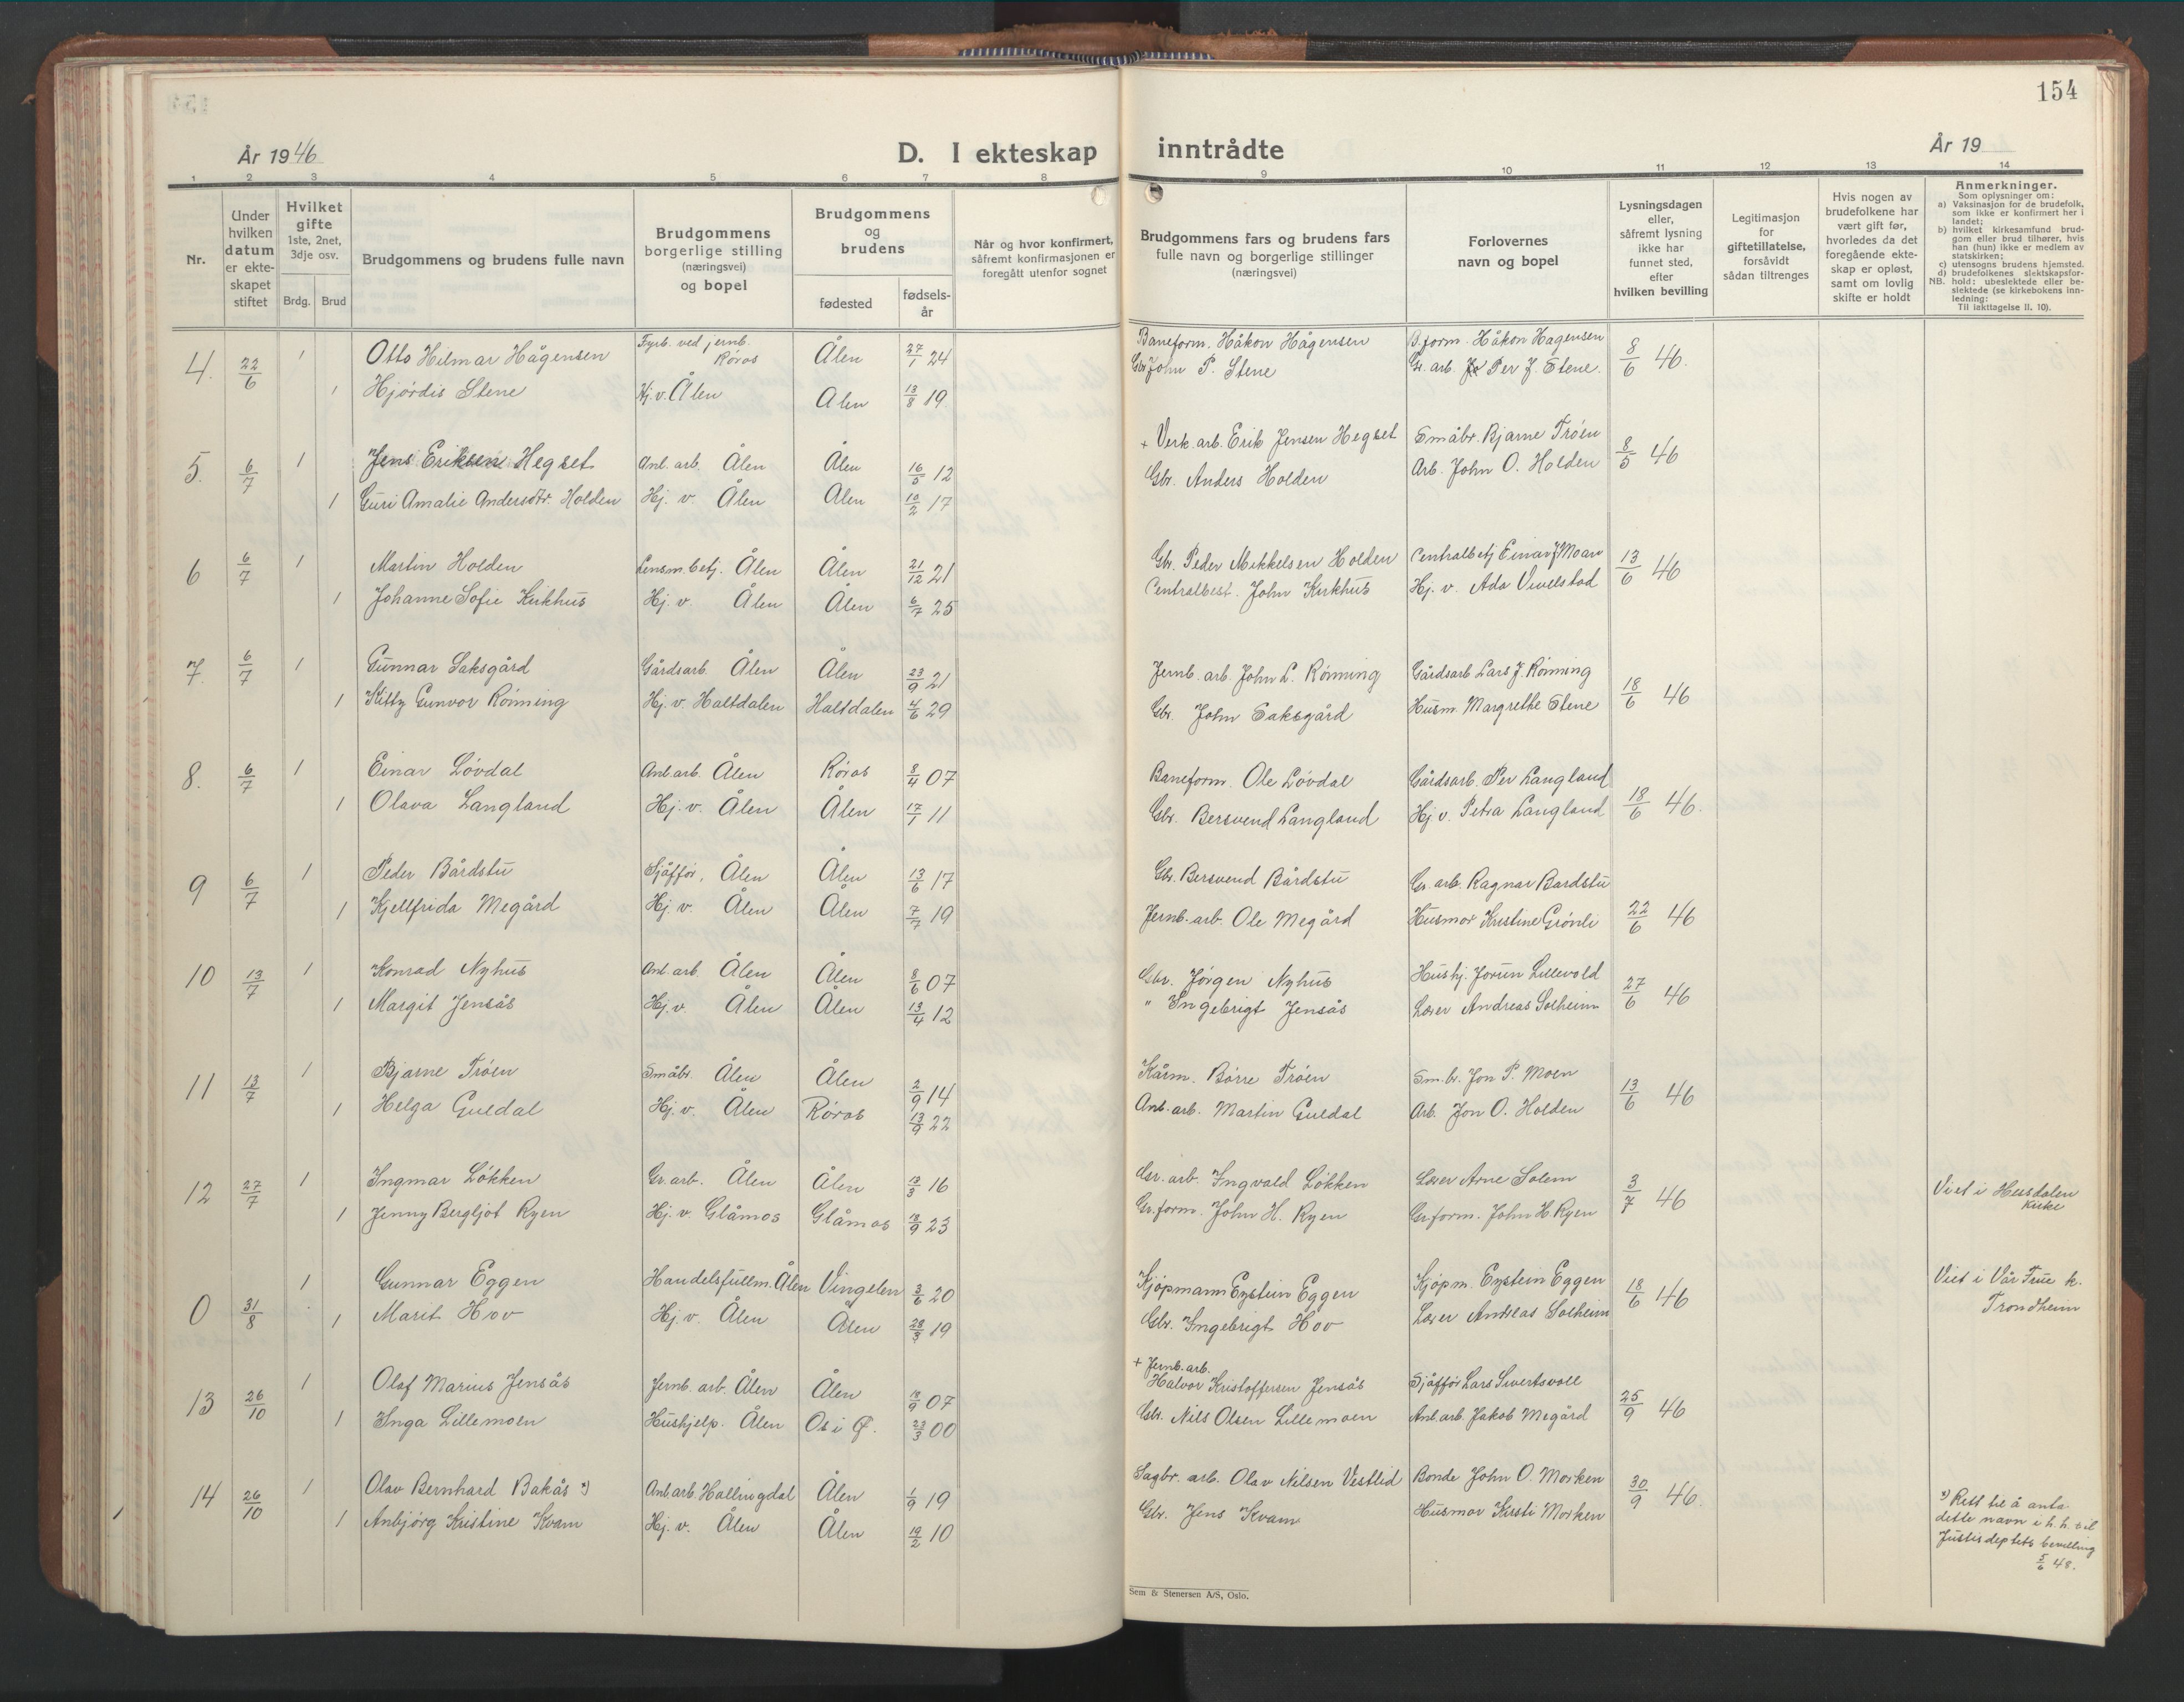 154
År 1946
D. I ekteskap inntrådte
År 19
1 2 3 4 5 6 7 8 9 10 11 12 13 14
Nr.
Under hvilken datum er ekteskapet stiftet
Hvilket gifte 1ste, 2net, 3dje osv.
Brdg. Brud
Brudgommens og brudens fulle navn
Brudgommens borgerlige stilling (næringsvei) og bopel
Brudgommens og brudens
fødested
fødselsår
Når og hvor konfirmert, såfremt konfirmasjonen er foregått utenfor sognet
Brudgommens fars og brudens fars fulle navn og borgerlige stillinger (næringsvei)
Forlovernes navn og bopel
Lysningsdagen eller, såfremt lysning ikke har funnet sted, efter hvilken bevilling
Legitimasjon for giftetillatelse, forsåvidt sådan tiltrenges
Hvis nogen av brudefolkene har vært gift før, hvorledes da det foregående ekteskap er opløst, samt om lovlig skifte er holdt
Anmerkninger.
Som oplysninger om:
a) Vaksinasjon for de brudefolk, som ikke er konfirmert her i landet;
b) hvilket kirkesamfund brudgom eller brud tilhører, hvis han (hun) ikke er medlem av statskirken;
c) utensogns brudens hjemsted.
d) brudefolkenes slektskapsforhold: ubeslektede eller beslektede (se kirkebokens innledning:
NB. Til iakttagelse II. 10).
4. 22/6 1 Otto Hilmar Hågensen Fyrb. ved jernb. Røros Ålen 27/1 24 Baneform. Håkon Hågensen B.form. Håkon Hagensen 8/6 46.
1 Hjördis Stene Hj.v. Ålen Alen 13/8 19 Gbr John P. Stene Gr. arb. Per J. Stene.
5. 6/7 1 Jens Eriksen Hegset Anl. arb. Ålen Ålen 16/5 12 + Verk.arb. Erik Jensen Hegset Småbr. Bjarne Tröen 8/5 46
1 Guri Amalie Andersdtr. Holden Hj. v. Ålen Alen 10/2 17 Gbr. Anders Holden Arb. John O. Holden
6 6/7 1 Martin Holden Lensm.betj. Ålen Ålen 21/12 21 Gbr. Peder Mikkelsen Holden Centralbetj Einar J Moan 13/6 46
1 Johanne Sofie Kirkhus Hj. v. Ålen Ålen 6/7 25 Centralbest. John Kirkhus Hj. v. Ada Vivelstad
7. 6/7 1 Gunnar Saksgård Gårdsarb. Ålen Ålen 23/9 21 Jernb. arb. John L. Rönning Gårdsarb Lars J. Rönning 18/6 46
1 Kitty Gunvor Rönning Hj. v. Haltdalen Haltdalen 4/6 29 Gbr. John Saksgård Husm. Margrethe Stene
8. 6/7 1 Einar Lövdal Anl.arb. Ålen Röros 8/4 07 Baneform. Ole Lövdal Gårdsarb. Per Langland 18/6 46.
1 Olava Langland Hj. v. Ålen Ålen 17/1 11 Gbr. Bersvend Langland Hj. v. Petra Langland
9 6/7 1 Peder Bårdstu Sjåffør, Ålen Ålen 13/6 17 Gbr. Bersvend Bårdstu Gr. arb. Ragnar Bardstu 22/6 46
1 Kjellfrida Megård Hj. v. Ålen Ålen 7/7 19 Jernb.arb. Ole Megård Husmor Kristine Grönli
10 13/7 1 Konrad Nyhus Anl. arb. Ålen Ålen 8/6 07 Gbr. Jörgen Nyhus Hushj. Jorun Lillevold 27/6 46
1 Margit Jensås Hj. v. Ålen Ålen 13/4 12 " Ingebrigt Jensås Lærer Andreas Solheim
11 13/7 1 Bjarne Tröen Småbr. Ålen Ålen 2/9 14 Kårm. Börre Tröen Sm.br. Jon P. Moen 13/6 46
1 Helga Guldal Hj. v. Ålen Röros 13/9 22 Anl.arb. Martin Guldal Arb. Jon O. Holden
12 27/7 1 Ingmar Lökken Gr.arb. Ålen Ålen 16 Gr.arb. Ingvald Lökken Lærer Arne Solem 3/7 46
1 Jenny Bergljot Ryen Hj. v. Glåmos Glåmos 23 Gr.form. John H. Ryen Gr.form. John H. Ryen
Viet i Hessdalen Kirke
0 31/8 1 Gunnar Eggen Handelsfullm. Ålen Vingelen 3/6 20 Kjöpmann Eystein Eggen Kjöpm. Eystein Eggen 18/6 46
1 Marit Hov Hj. v. Ålen Ålen 28/3 19 Gbr. Ingebrigt Hov Lærer Andreas Solheim
Viet i Vår Frue k. Trondheim
13 26/10 1 Olaf Marius Jensås Jernb. arb. Ålen Ålen 07 + Jernb.arb. Halvor Kristoffersen Jensås Sjåffør Lars Sivertsvoll 25/9 46
1 Inga Lillemoen Hushjelp. Ålen Os i Ø. 23/3 00 Gbr. Nils Olsen Lillemoen Anl.arb. Jakob Megård
14 26/10 1 Olav Bernhard Bakås x) Anl.arb. Hallingdal Ålen 1/9 19 Sagbr. arb. Olav Nilsen Vestlid Bonde John O. Morken 30/9 46.
1 Anbjörg Kristine Kvam Hj. v. Ålen Ålen 19/2 10 Gbr. Jens Kvam Husmor Kirsti Morken
x) Rett til å anta
dette navn i h. h. til
Justisdeptets bevilling
5/6 48.
Sem & Stenersen A/S, Oslo.